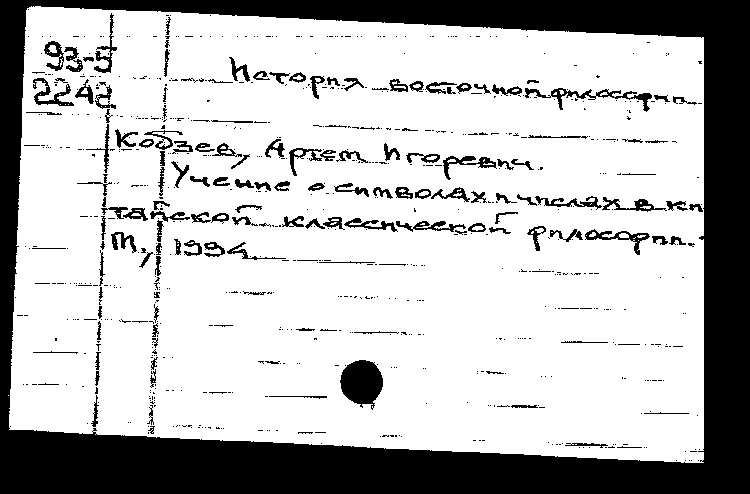 93-5
2242
История восточной философии
Кобзев, Артем Игоревич.
Учение о символах и числах в ки
тайской классической философии. -
М., 1994.